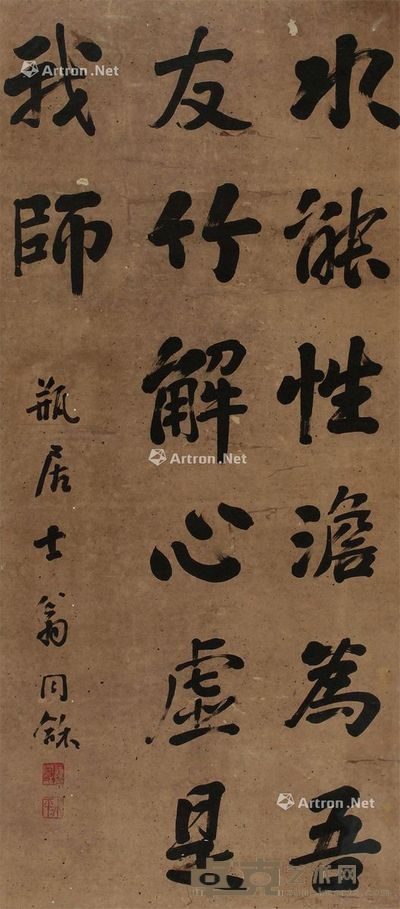 水能性澹為吾
友竹解心虛是
我師
瓶居士翁同龢
Artron.Net
Artron.Net
Artron.Net
Artron.Net
艺术网